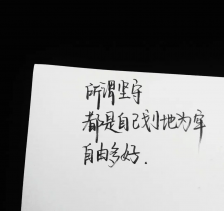 所谓坚守
都是自己划地为牢
自由多好.